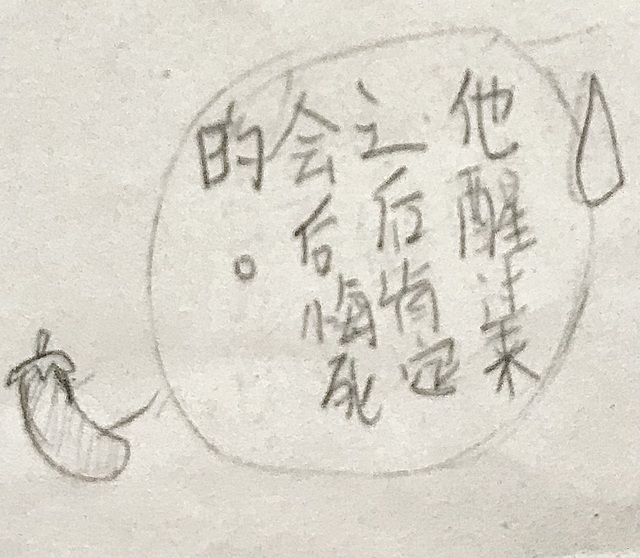 他醒过来
之后肯定
会后悔死
的。